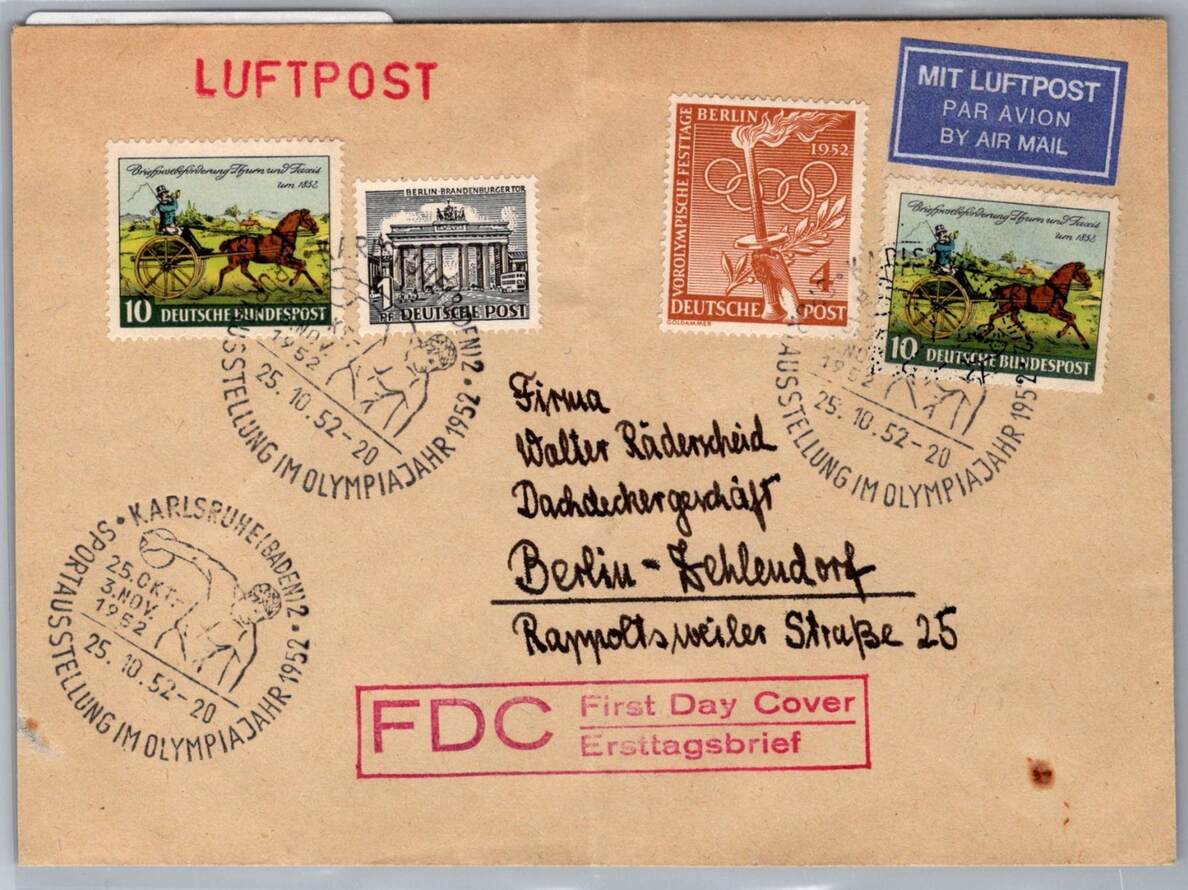 LUFTPOST
MIT LUFTPOST
PAR AVION
BY AIR MAIL
Briefpostbeförderung Thurn und Taxis
um 1852
10 DEUTSCHE BUNDESPOST
BERLIN-BRANDENBURGER TOR
1
PF DEUTSCHE POST
VOROLYMPISCHE FESTTAGE
BERLIN
1952
4
DEUTSCHE POST
GOLDAMMER
Briefpostbeförderung Thurn und Taxis
um 1852
10 DEUTSCHE BUNDESPOST
NOV.
1952
25. 10. 52-20
AUSSTELLUNG IM OLYMPIAJAHR 1952
1952
25. 10. 52-20
AUSSTELLUNG IM OLYMPIAJAHR 1952
Firma
Walter Räderscheid
Dachdeckergeschäft
Berlin-Zehlendorf
Rappoltsweiler Straße 25
KARLSRUHE (BADEN) 2
25. OKT.-
3. NOV.
1952
25. 10. 52-20
SPORTAUSSTELLUNG IM OLYMPIAJAHR 1952
FDC
First Day Cover
Ersttagsbrief